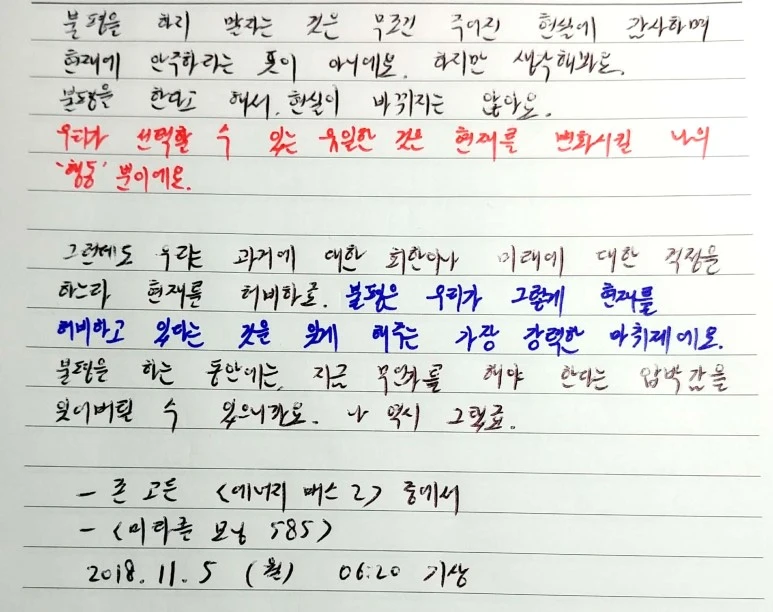 불평을 하지 말라는 것은 무조건 주어진 현실에 감사하며
현재에 안주하라는 뜻이 아니에요. 하지만 생각해봐요.
불평을 한다고 해서, 현실이 바뀌지는 않아요.
우리가 선택할 수 있는 유일한 것은 현재를 변화시킬 나의
'행동' 뿐이에요.
그런데도 우리는 과거에 대한 회한이나 미래에 대한 걱정을
하느라 현재를 허비하죠. 불평은 우리가 그렇게 현재를
허비하고 있다는 것을 잊게 해주는 가장 강력한 마취제에요.
불평을 하는 동안에는, 지금 무언가를 해야 한다는 압박감을
잊어버릴 수 있으니까요. 나 역시 그랬죠.
- 존 고든 <에너지 버스 2> 중에서
- <미라클 모닝 585>
2018. 11. 5 (월) 06:20 기상